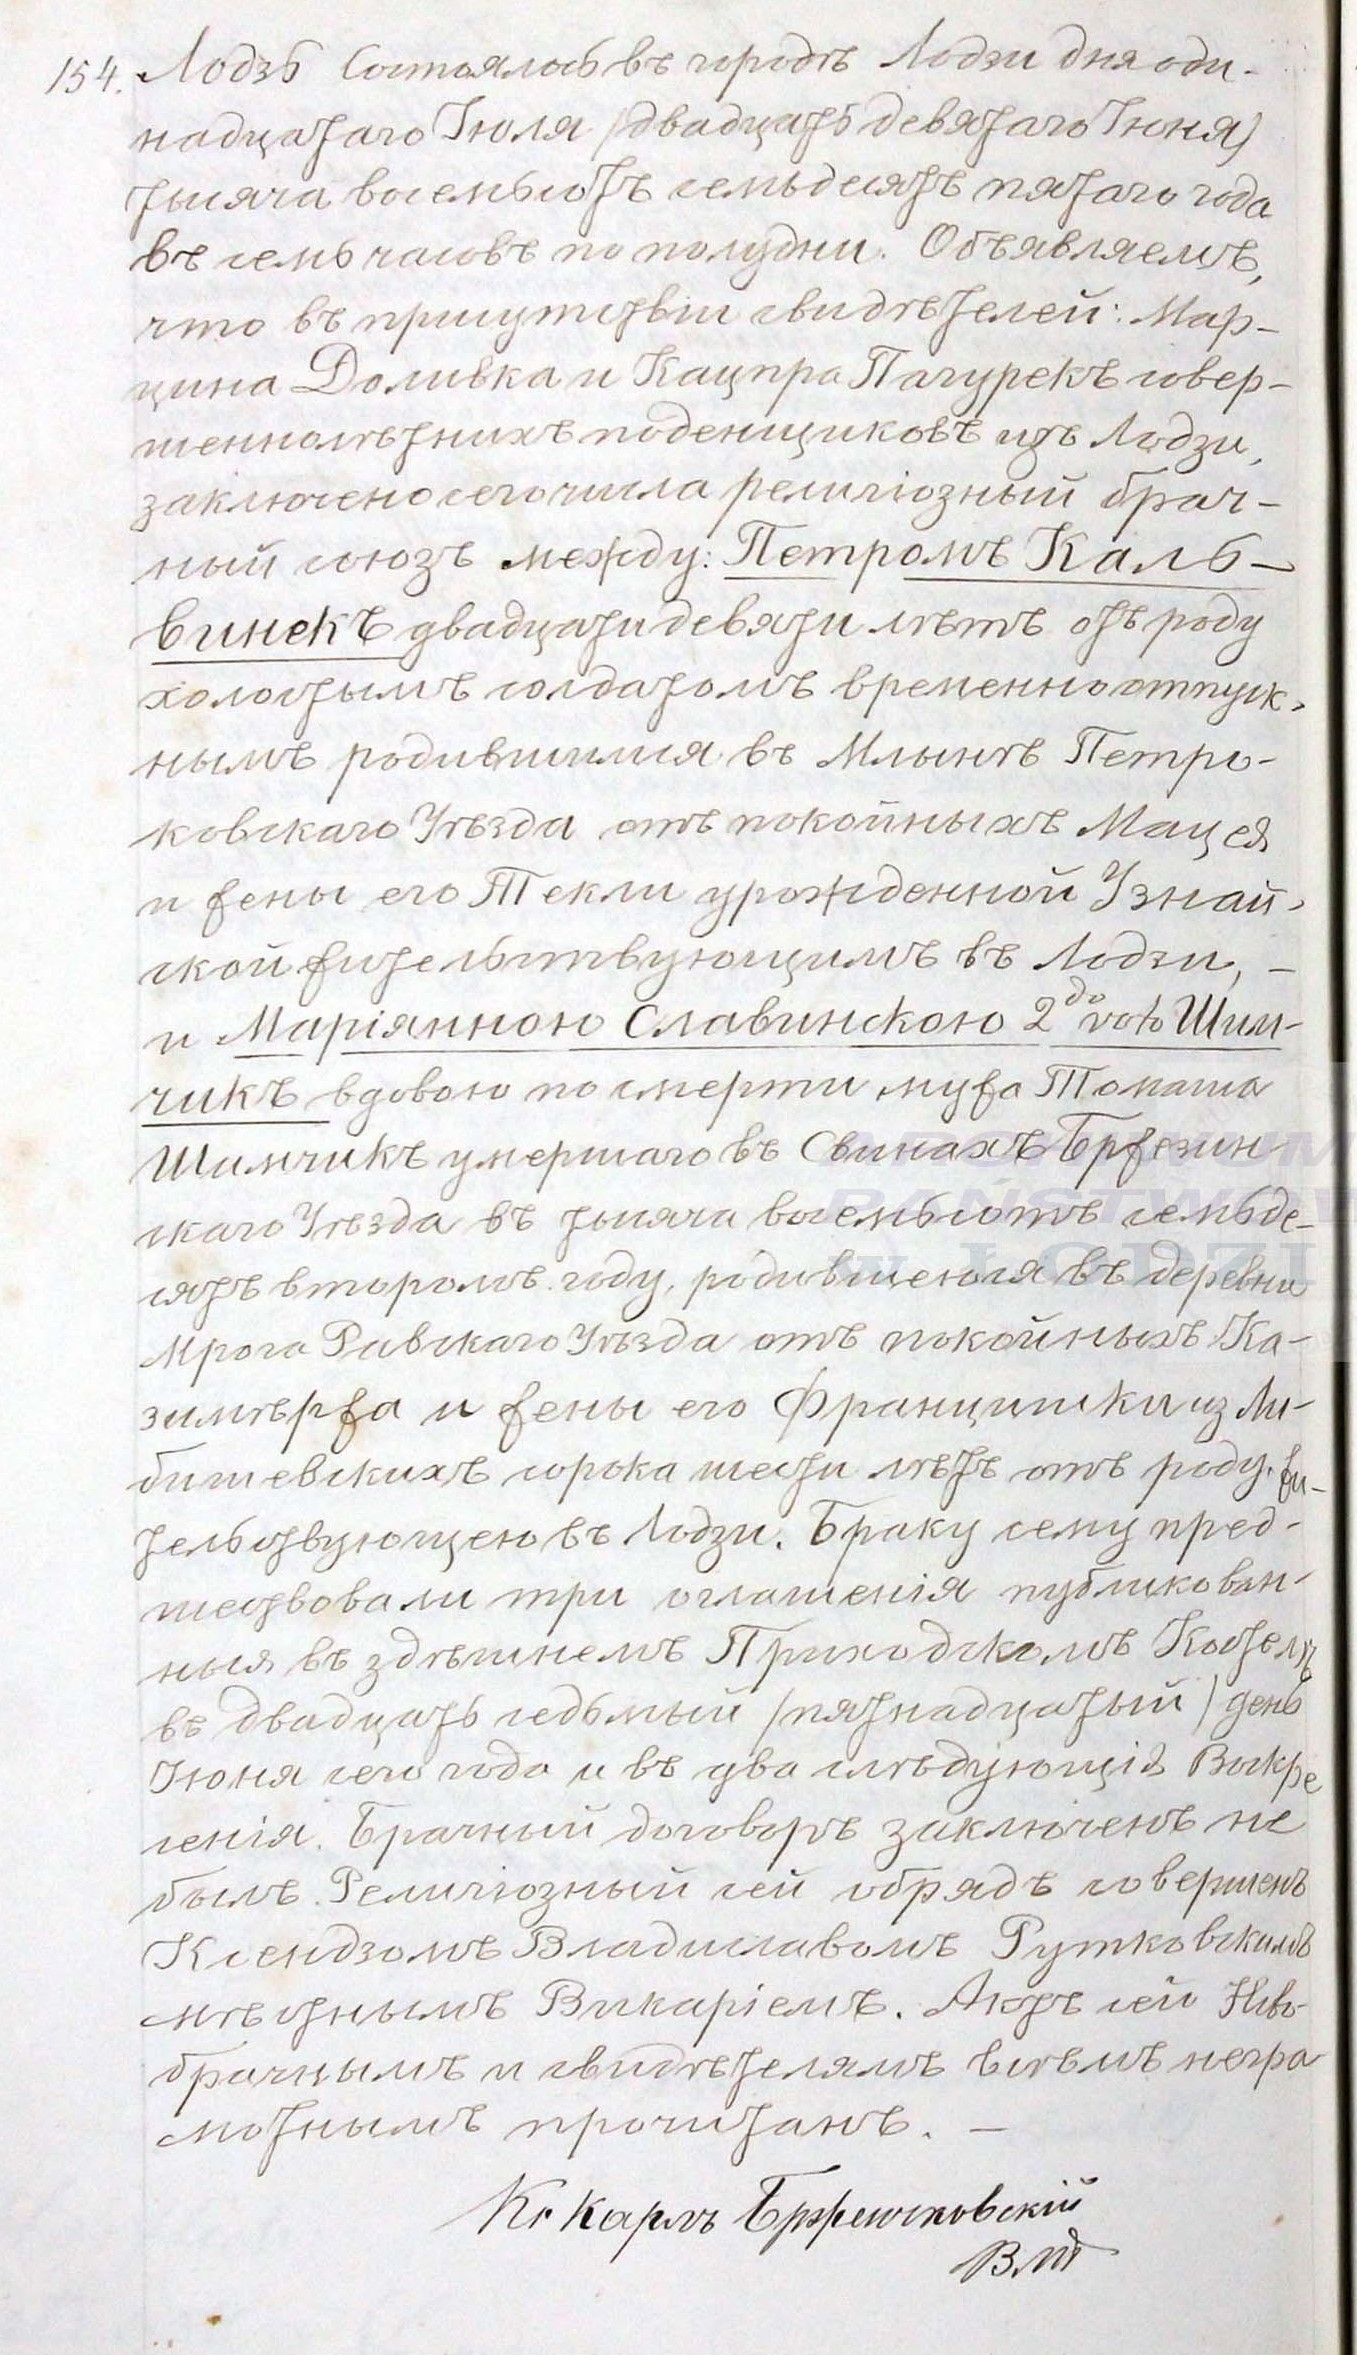 154. Лодзь Состоялось въ городѣ Лодзи дня оди-
надцатаго Іюля /двадцать девятаго Іюня/
тысяча восемьсотъ семьдесятъ пятаго года
въ семь часовъ по полудни. Объявляемъ,
что въ присутствіи свидѣтелей: Мар-
цина Доливка и Кацпра Пачурекъ совер-
шеннолѣтнихъ поденщиковъ изъ Лодзи,
заключено сего числа религіозный брач-
ный союзъ между: Петромъ Каль-
винекъ двадцати девяти лѣтъ отъ роду
холостымъ солдатомъ временно отпуск-
нымъ родившимся въ Млынѣ Петро-
ковскаго Уѣзда отъ покойныхъ Мацея
и жены его Текли урожденной Узнай-
ской жительствующимъ въ Лодзи, –
и Маріянною Славинскою 2do voto Шим-
чикъ вдовою по смерти мужа Томаша
Шимчикъ умершаго въ Свинахъ Бржезин
скаго Уѣзда въ тысяча восемьсотъ семьде-
сятъ второмъ году, родившеюся въ деревни
Мрога Равскаго Уѣзда отъ покойныхъ Ка-
зимѣржа и жены его Францишки из Ли-
бишевскихъ сорока шести лѣтъ отъ роду, жи-
тельствующею въ Лодзи. Браку сему пред-
шествовали три оглашенія публикован-
ныя въ здѣшнемъ Приходскомъ Костелѣ
въ двадцать седьмый /пятнадцатый/ день
Іюня сего года и въ два слѣдующія Воскре
сенія. Брачный договоръ заключенъ не
былъ. Религіозный сей обрядъ совершенъ
Ксендзомъ Владиславомъ Рутковскимъ
мѣстнымъ Викаріемъ. Актъ сей Ново-
брачнымъ и свидѣтелямъ всѣмъ негра
мотнымъ прочитанъ. –
Кс Карлъ
ARCHIWUM
PAŃSTWOWE
w ŁODZI